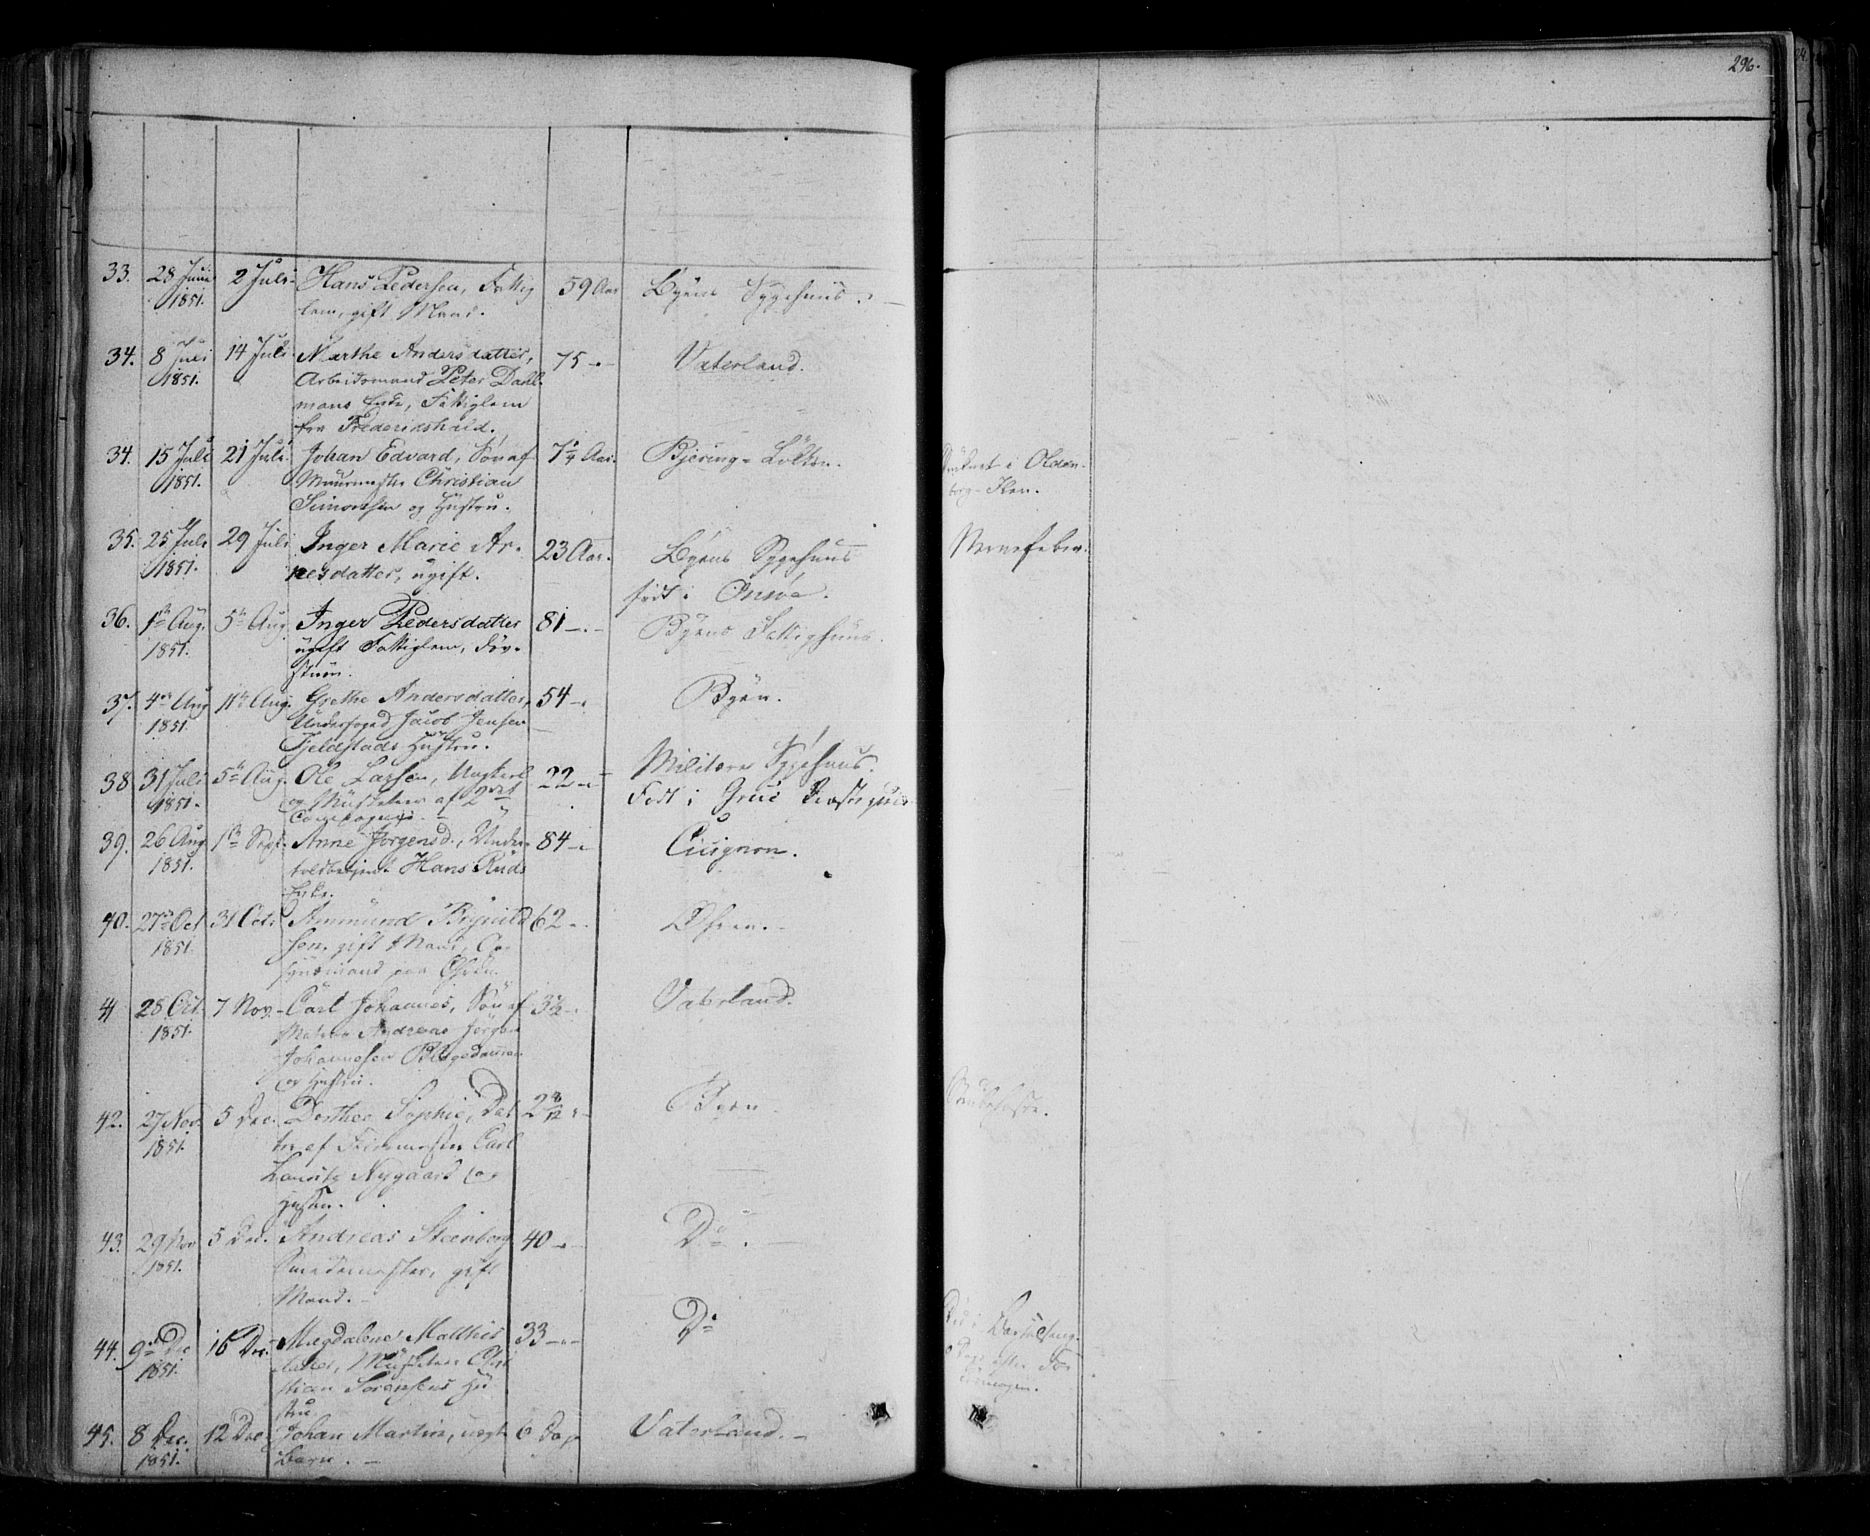 296.
33. 28 Juni 2 Juli Hans Pedersen, Fattig 59 Aar Byens Sygehuus.
1851. lem, gift Mand.
34. 8 Juli 14 Juli Marthe Andersdatter, 75 Vaterland.
1851. Arbeidsmand Peter Dahl
mans Enke, Fattiglem
fra Frederikshald.
34. 15 Juli 21 Juli Johan Edvard, Søn af 7 1/4 Aar. Bjering-Løkken. Druknet i Olden-
1851. Muurmester Christian borg-Elven.
Simonsen og Hustru.
35. 25 Juli 29 Juli Inger Marie Ar- 23 Aar. Byens Sygehuus Nervefeber.
1851. nesdatter, ugift. født i Onsøe.
36. 1ste Aug. 5te Aug. Inger Pedersdatter 81 Byens Fattighuus.
1851. ugift Fattiglem, døv-
stum.
37. 4de Aug 11te Aug. Grethe Andersdatter, 54 Byen.
1851. Underfoged Jacob Jensen
Fjeldstads Hustru.
38 31 Juli 5te Aug. Ole Larsen, Ungkarl 22 Militære Sygehuus.
1851. og Musketeer af 2det Født i Grue Præstegjeld
Compagnie.
39. 26 Aug 1ste Sept. Anne Jørgensd., Under- 84 Cicignon.
1851. toldbetjent Hans Ruds
Enke.
40. 27de Oct 31 Oct. Ammund Brynild 62 Øhren.
1851. sen, gift Mand, Op
synsmand paa Øhren.
41 28 Oct. 7 Nov. Carl Johannes, Søn af 3 1/2 Vaterland.
1851. Andreas Jørgen
Johannesen
og Hustru.
42. 27 Nov. 5 Dec. Dorthea Sophie, Dat 2 8/12 Byen
1851. ter af Carl
Lauritz Nygaard og
Hustru.
43. 29 Nov 5 Dec. Andreas Steenberg 40 Do.
1851. Smedemester, gift
Mand.
44. 9de Dec 16 Dec. Magdalene Matthis 33 Do Død i Barselseng
1851. datter, Musketeer Chri Dage efter
stian Sørensens Hu
stru
45. 8 Dec. 12 Dec. Johan Martin, uægte 6 Dage Vaterland.
1851. Barn.